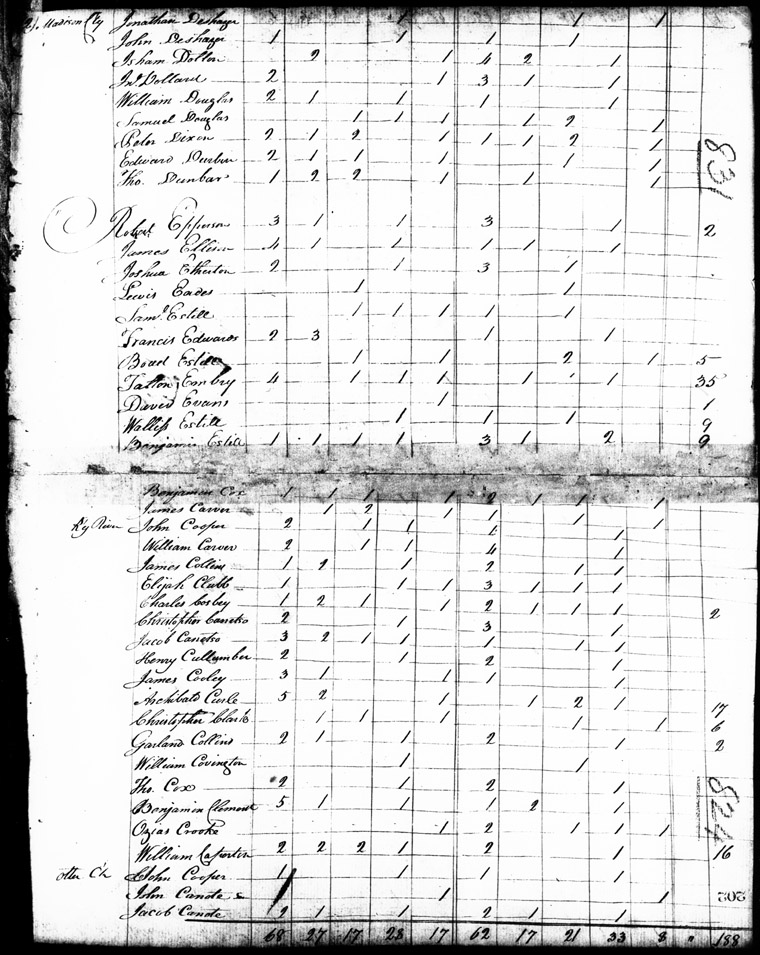 Madison Cty Jonathan Deshazer 1 1 1
John Deshazer 1 1 1 1
Isham Dolton 2 1 4 2 1
Jno. Dollard 2 1 3 1 1
William Douglas 2 1 1 1 1
Samuel Douglas 1 1 1 1 2 1
Peter Dixon 2 1 2 1 1 1 2 1
Edward Durbin 2 1 1 1 1 1
Tho. Dunbar 1 2 2 1 1 1
831
Robert Epperson 3 1 1 3 1 2
James Ellison 4 1 1 1 1 1
Joshua Etherton 2 1 3 1
Lewis Eades 1 1
Saml. Estill 1 1 1 1 1 1
Francis Edwards 2 3 1 1
Boud Estill 1 1 2 1 5
Talton Embry 4 1 1 1 1 1 1 35
David Evans 1 1
Wallis Estill 1 1 1 9
Benjamin Estill 1 1 1 1 3 1 2 9
Benjamin Cox 1 1 1 1 2 1 1 1
James Carver 1 2 1 1 1 1
Ky River John Cooper 2 1 1 1 1
William Carver 2 1 1 4 1
James Collins 1 2 1 2 1 1
Elijah Clubb 1 1 1 3 1 1 1
Charles Cosby 1 2 1 1 2 1 1 1 2
Christopher Canotso 2 1 3 1
Jacob Canotso 3 2 1 1 1 1 1
Henry Cullumber 2 1 2 1
James Cooley 3 1 1 1 1
Archibald Curle 5 2 1 1 2 1 17
Christopher Clark 1 1 1 1 1 6
Garland Collins 2 1 1 2 1 2
William Covington 1 1
Tho. Cox 2 1 2 1
Benjamin Clemont 5 1 1 1 2 1
824
Ozias Crooke 1 2 1 1 1
William 2 2 2 1 2 1 16
Otter Ck John Cooper 1 1 1 1
John Canote 1 1
202
Jacob Canote 2 1 1 2 1 1
68 27 17 28 17 62 17 21 33 8 " 188